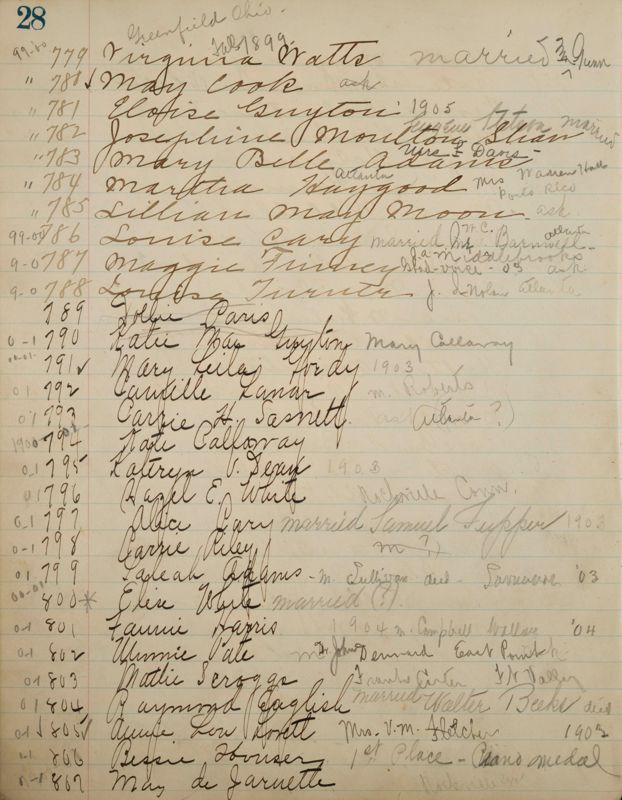 28
Greenfield Ohio.
Feb 1899
99-00 779 Virginia Watts married Gunn
" 780 ✓ May Cook ask
" 781 Eloise Guyton 1905
" 782 Josephine Moulton Shaw married
" 783 Mary Belle Adams Mrs Davis
" 784 Martha Haygood Atlanta Mrs Warren Hall
Porto Rico
" 785 Lillian May Moon ask
99-00 786 Louise Cary married W.C. Barnwell Atlanta
9-0 787 Maggie Finney Middlebrooks ask
9-0 788 Louise Turner Atlanta
789 Lollie Paris
0-1 790 Katie Mae Guyton Mary Callaway
00-01 791 ✓ Mary Leila 1903
01 792 Camille Lanar m. Roberts
01 793 Carrie H. Sasnett. ask Atlanta ?)
1900 794 Kate Calloway
0-1 795 Kathryn V. Dean 1903
01 796 Hazel E. White Conn.
0-1 797 Alice Cary married Samuel Tupper 1903
0-1 798 Carrie Riley m ?)
01 799 Adams - m. Sullivan died - Savannah '03
00-01 800 * Elise White married (?).
0-1 801 Fannie Harris 1904 m. Campbell Wallace '04
0-1 802 Minnie Pate m Dr John Dennard East Point
01 803 Mattie Scroggs Frank Carter Ft Valley
01 804 Raymond English married Walter Beeks died
0-1 ✓ 805 ✓ Annie Lou Lovett Mrs. V. M. Fletcher 1902
0-1 806 Bessie Houser 1st Place - Piano medal
0-1 807 May de Jarnette